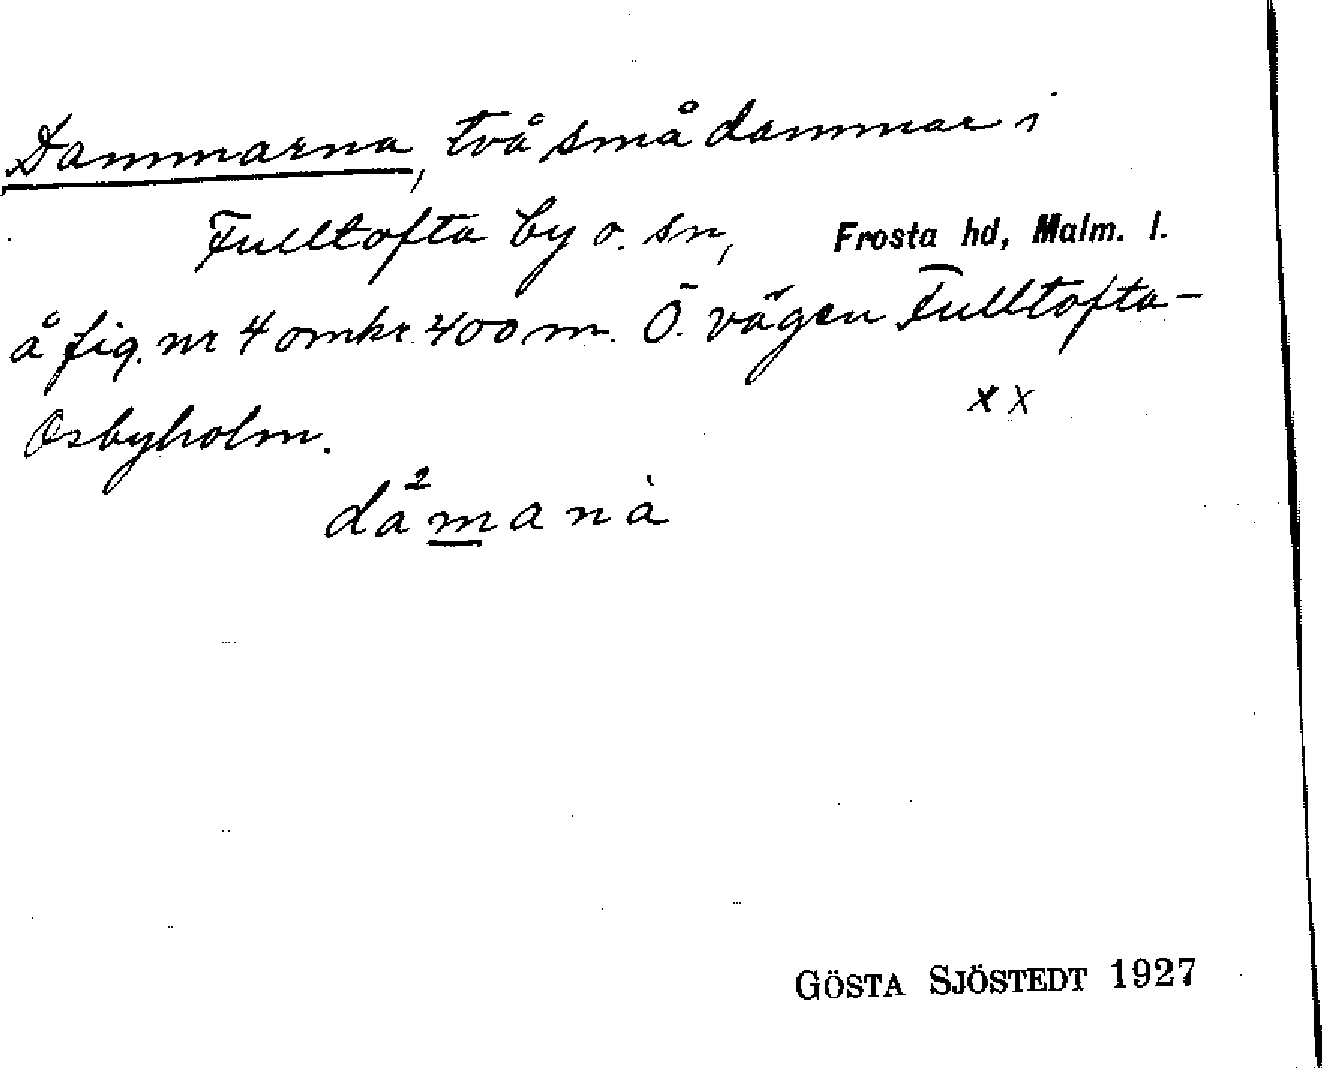 Dammarna, två små dammar i
Fulltofta by o. sn, Frosta hd, Malm. l.
å fig. nr 4 omkr. 400 m. Ö. vägen Fulltofta-
Osbyholm.
x x
då²manà
GÖSTA SJÖSTEDT 1927